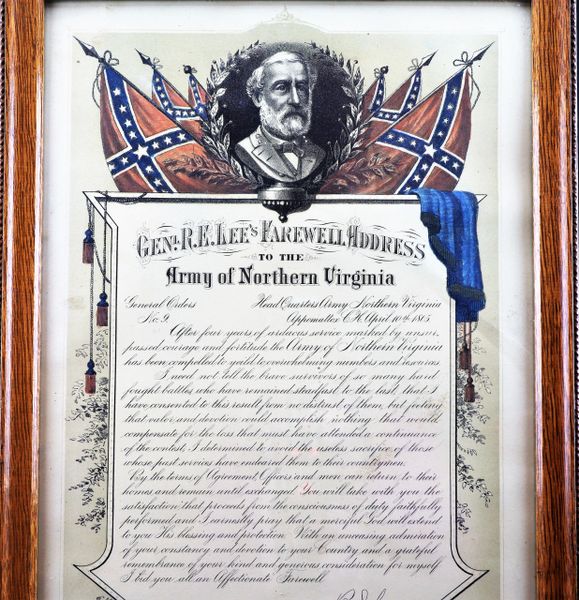 GENL. R. E. LEE'S FAREWELL ADDRESS
TO THE
Army of Northern Virginia
General Orders Head Quarters Army Northern Virginia
No. 9. Appomattox C.H. April 10th 1865
After four years of arduous service marked by unsur-
passed courage and fortitude the Army of Northern Virginia
has been compelled to yield to overwhelming numbers and resources
I need not tell the brave survivors of so many hard
fought battles who have remained steadfast to the last that I
have consented to this result from no distrust of them, but feeling
that valor and devotion could accomplish nothing that would
compensate for the loss that must have attended a continuance
of the contest, I determined to avoid the useless sacrifice of those
whose past services have endeared them to their countrymen.
By the terms of Agreement, Officers and men can return to their
homes and remain until exchanged. You will take with you the
satisfaction that proceeds from the consciousness of duty faithfully
performed and I earnestly pray that a merciful God will extend
to you His blessing and protection. With an unceasing admiration
of your constancy and devotion to your Country and a grateful
remembrance of your kind and generous consideration for myself
I bid you all an Affectionate Farewell